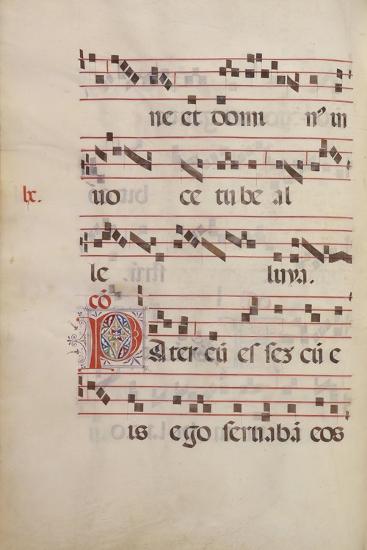 ne et domin⁹ in
lx. uo ce tu be al
le luya.
cō
Pater cū es ses cū e
is ego seruabā eos